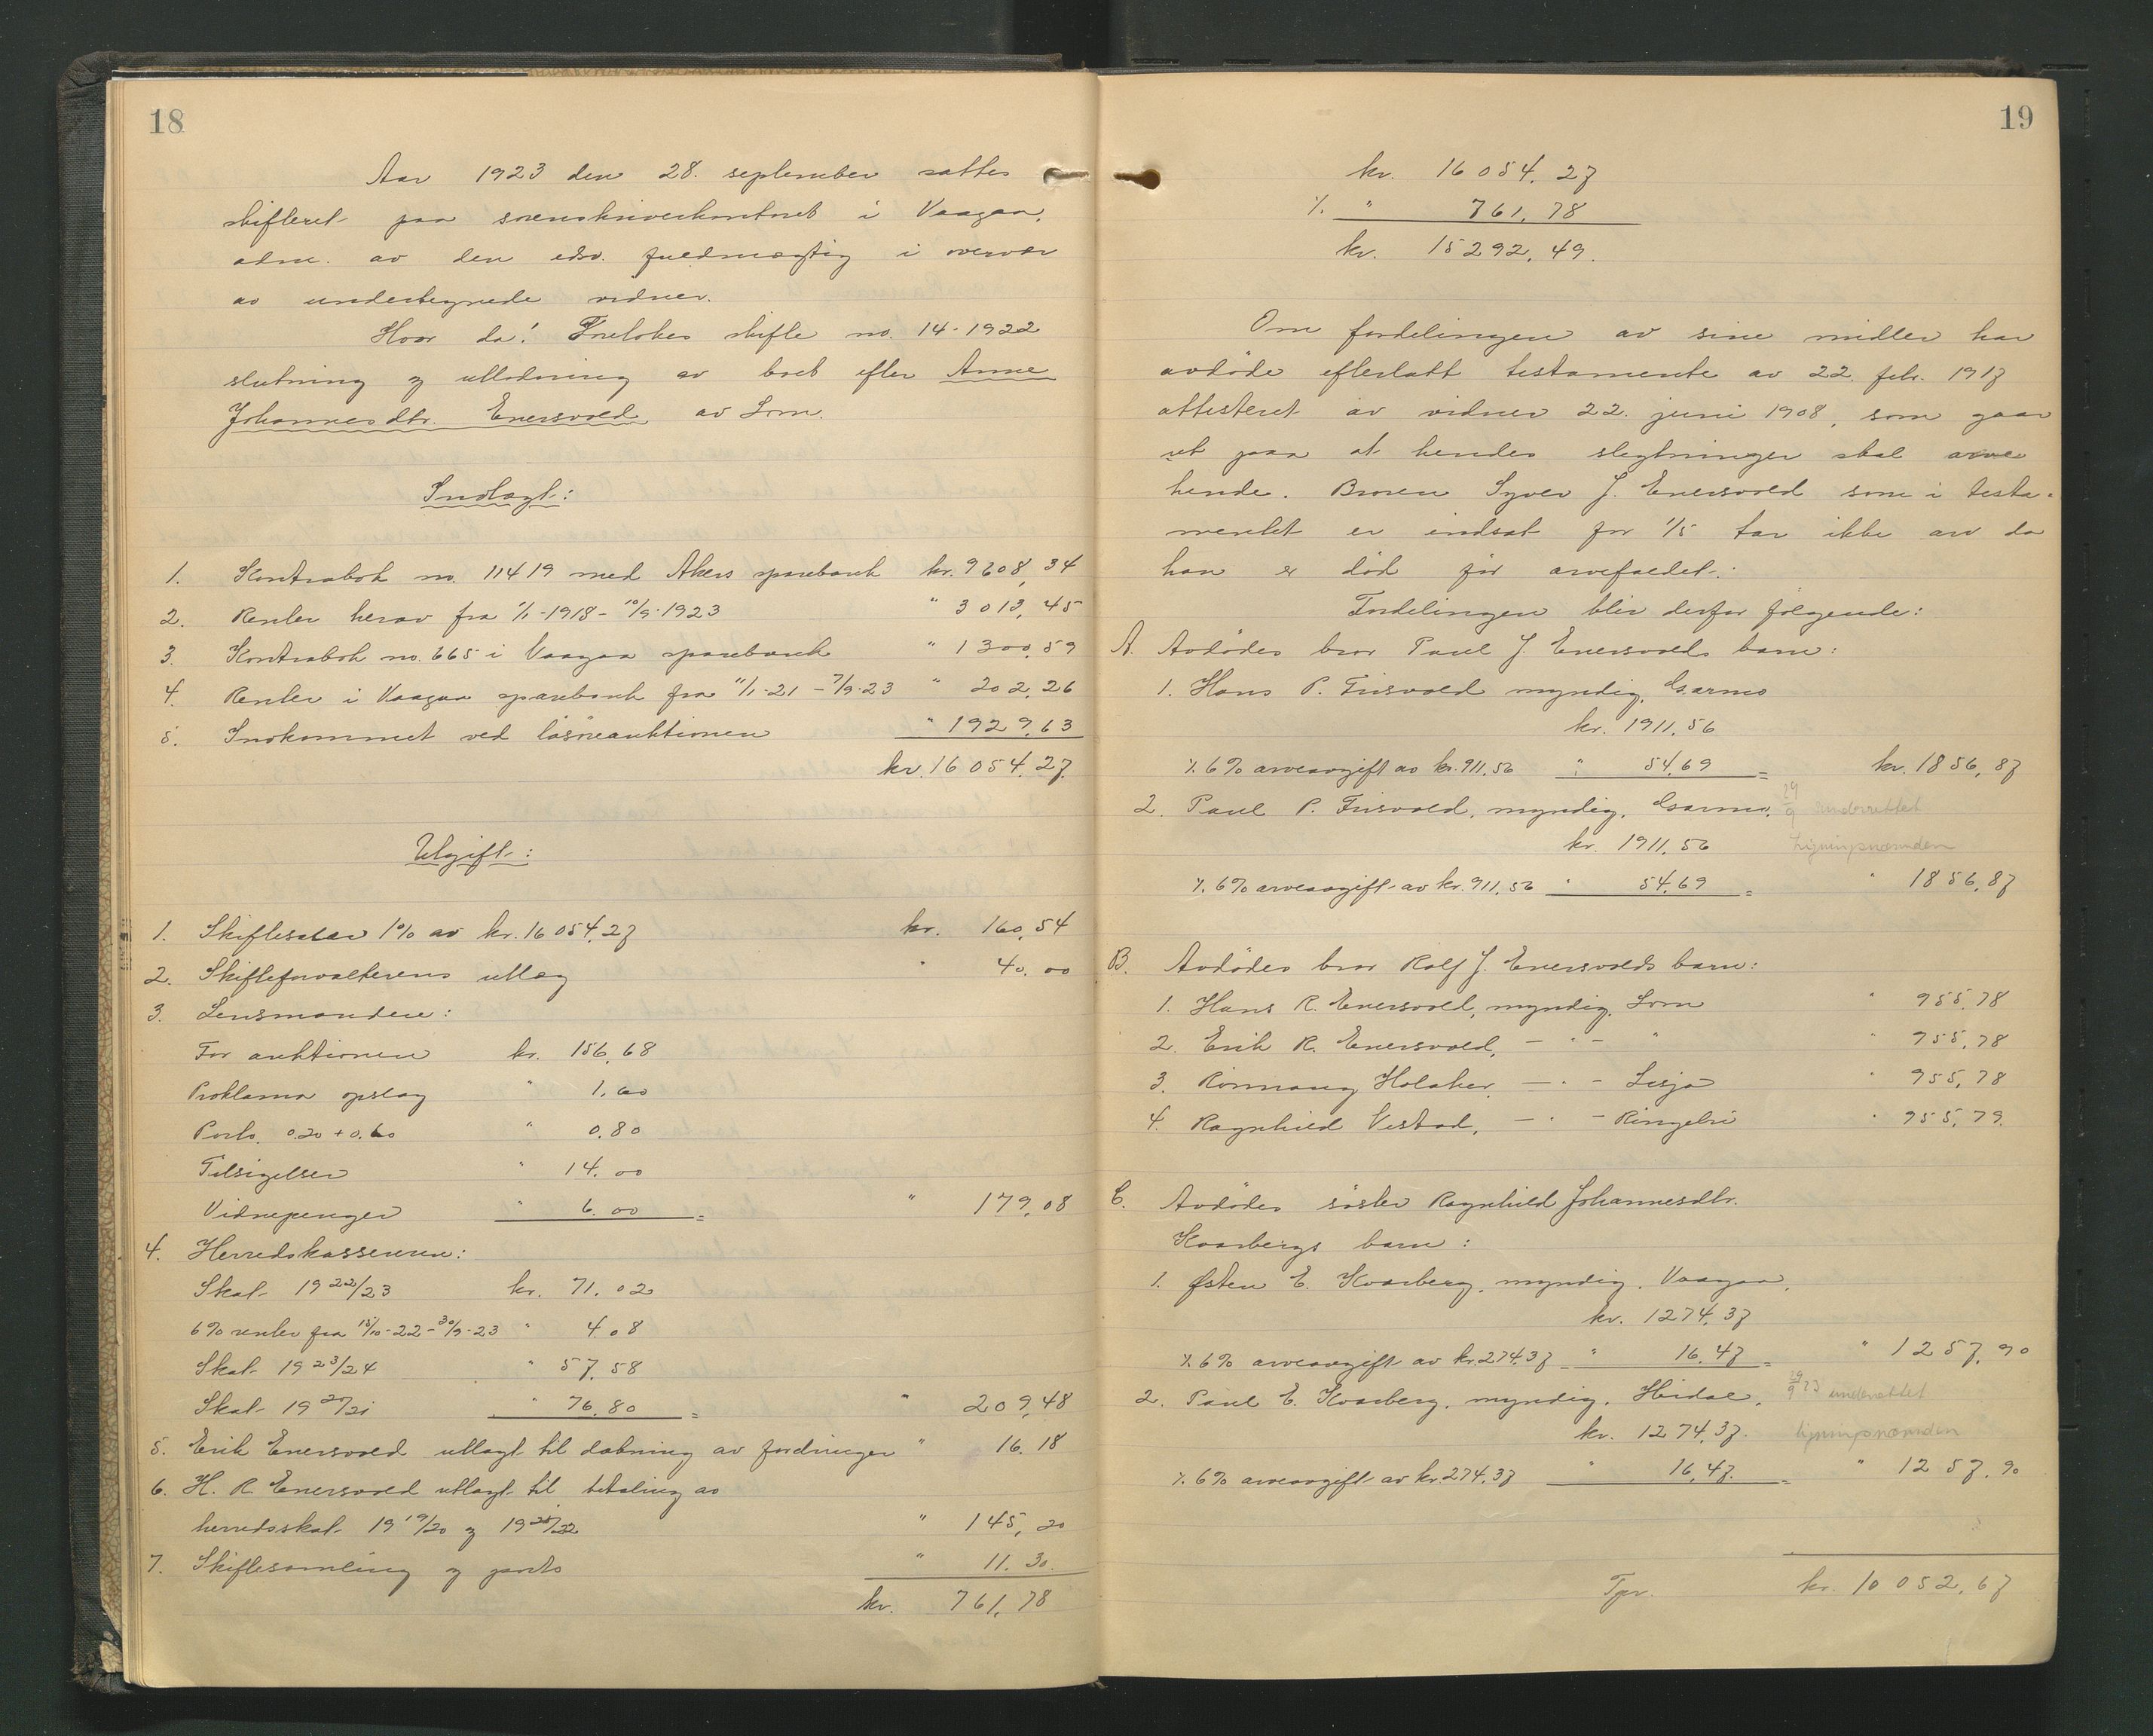 18
Aar 1923 den 28. september sattes
skifteret paa sorenskriverkontoret i Vaagaa,
adm. av den edsv. fuldmægtig i overvær
av undertegnede vidner.
Hvor da: Foretokes skifte no. 14-1922
slutning og utlodning av boet efter Anne
Johannesdtr. Enersvold av Lom.
Indtægt:
1. Kontrabok no. 11419 med Akers sparebank kr. 9608,34
2. Renter herav fra 1/1-1918 - 10/9-1923 " 3013,45
3. Kontrabok no. 665 i Vaagaa sparebank " 1300,59
4. Renter i Vaagaa sparebank fra 11/1-21 - 7/9-23 " 202,26
5. Indkommet ved løsøreauktionen " 1929,63
kr. 16054,27
Utgift:
1. Skiftesalær 1% av kr. 16054,27 kr. 160,54
2. Skifteforvalterens utlæg " 40.00
3. Lensmanden:
For auktionen kr. 156,68
Proklama opslag " 1.60
Porto 0.20 + 0.60 " 0.80
Tilsigelser " 14.00
Vidnepenger " 6.00 = " 179,08
4. Herredskassereren:
Skat 1922/23 kr. 71.02
6% renter fra 15/10-22 - 30/9-23 " 4.08
Skat 1923/24 " 57.58
Skat 1920/21 " 76.80 = " 209,48
5. Erik Enersvold utlagt til dækning av fordringer " 16.18
6. H. R. Enersvold utlagt til betaling av
herredsskat 1919/20 og 1921/22 " 145,20
7. Skiftesamling og porto " 11.30
kr. 761,78
19
kr. 16054,27
% " 761,78
kr. 15292,49.
Om fordelingen av sine midler har
avdøde efterlatt testamente av 22. febr. 1917
attesteret av vidner 22. juni 1908, som gaar
ut paa at hendes slegtninger skal arve
hende. Broren Syver J. Enersvold som i testa-
mentet er indsat for 1/5 tar ikke arv da
han er død før arvefaldet.
Fordelingen blir derfor følgende:
A. Avdødes bror Paul J. Enersvolds barn:
1. Hans P. Frisvold myndig, Garmo
kr. 1911,56
% 6% arveavgift av kr. 911,56 " 54,69 = kr. 1856,87
2. Paul P. Frisvold, myndig, Garmo. 29/9 underrettet
kr. 1911,56 Ligningsnæmnden
% 6% arveavgift av kr. 911,56 " 54,69 = " 1856,87
B. Avdødes bror Rolf J. Enersvolds barn:
1. Hans R. Enersvold, myndig, Lom " 955,78
2. Erik R. Enersvold, — " — " " 955,78
3. Rønnaug Holaker, — " — Lesja " 955,78
4. Ragnhild Vestad, — " — Ringebu " 955,79.
C. Avdødes søster Ragnhild Johannesdtr.
Kvarbergs barn:
1. Østen E. Kvarberg, myndig, Vaagaa,
kr. 1274,37
% 6% arveavgift av kr. 274,37 " 16,47 = " 1257,90
2. Paul E. Kvarberg, myndig, Heidal, 29/9 23 underrettet
kr. 1274,37. Ligningsnæmnden
% 6% arveavgift av kr. 274,37 " 16,47 = " 1257,90
Tpr. kr. 10052,67